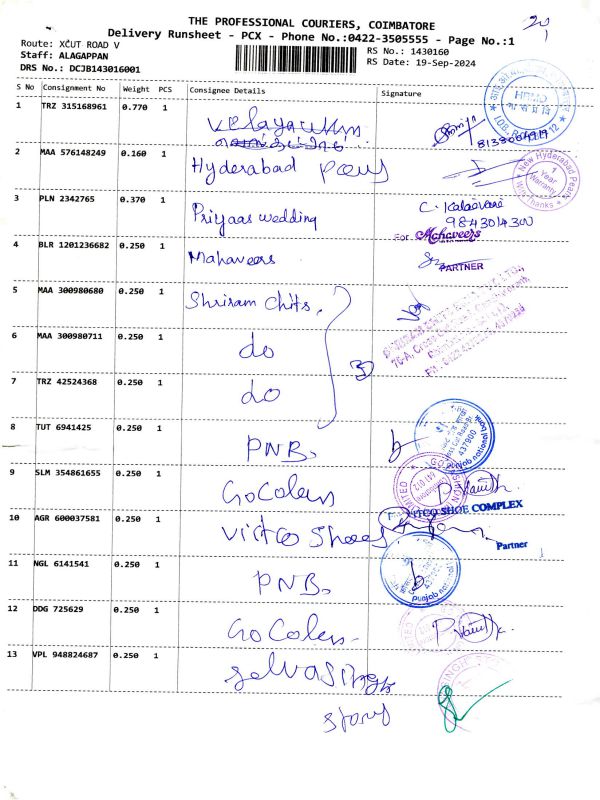 THE PROFESSIONAL COURIERS, COIMBATORE
Delivery Runsheet - PCX - Phone No.:0422-3505555 - Page No.:1
20
1
Route: XCUT ROAD V
Staff: ALAGAPPAN
DRS No.: DCJB143016001
RS No.: 1430160
RS Date: 19-Sep-2024
S No Consignment No Weight PCS Consignee Details Signature
1 TRZ 315168961 0.770 1 Velayautham
2 MAA 576148249 0.160 1 Hyderabad Pearls
New Hyderabad Pearls
1 Year Warranty
With Thanks
3 PLN 2342765 0.370 1 Priyaas wedding C. Kalaivani
9843014300
4 BLR 1201236682 0.250 1 Mahaveers
For Mahaveers
PARTNER
5 MAA 300980680 0.250 1 Shriram chits.
6 MAA 300980711 0.250 1 do
7 TRZ 42524368 0.250 1 do
3
8 TUT 6941425 0.250 1 PNB.
437900
punjab national bank
9 SLM 354861655 0.250 1 GoColors
10 AGR 600037581 0.250 1 Vitco Shoes
VITCO SHOE COMPLEX
Partner
11 NGL 6141541 0.250 1 PNB.
punjab national
12 DDG 725629 0.250 1 GoColors
13 VPL 948824687 0.250 1 Selvasingh
Stores